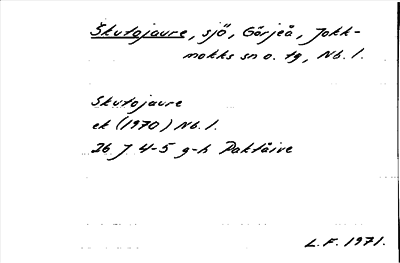 Škutojaure, sjö, Görjeå, Jokk-
mokks sn o. tg, Nb. l.
Skutojaure
ek (1970) Nb. l.
26 J 4-5 g-h Paktåive
L.F. 1971.